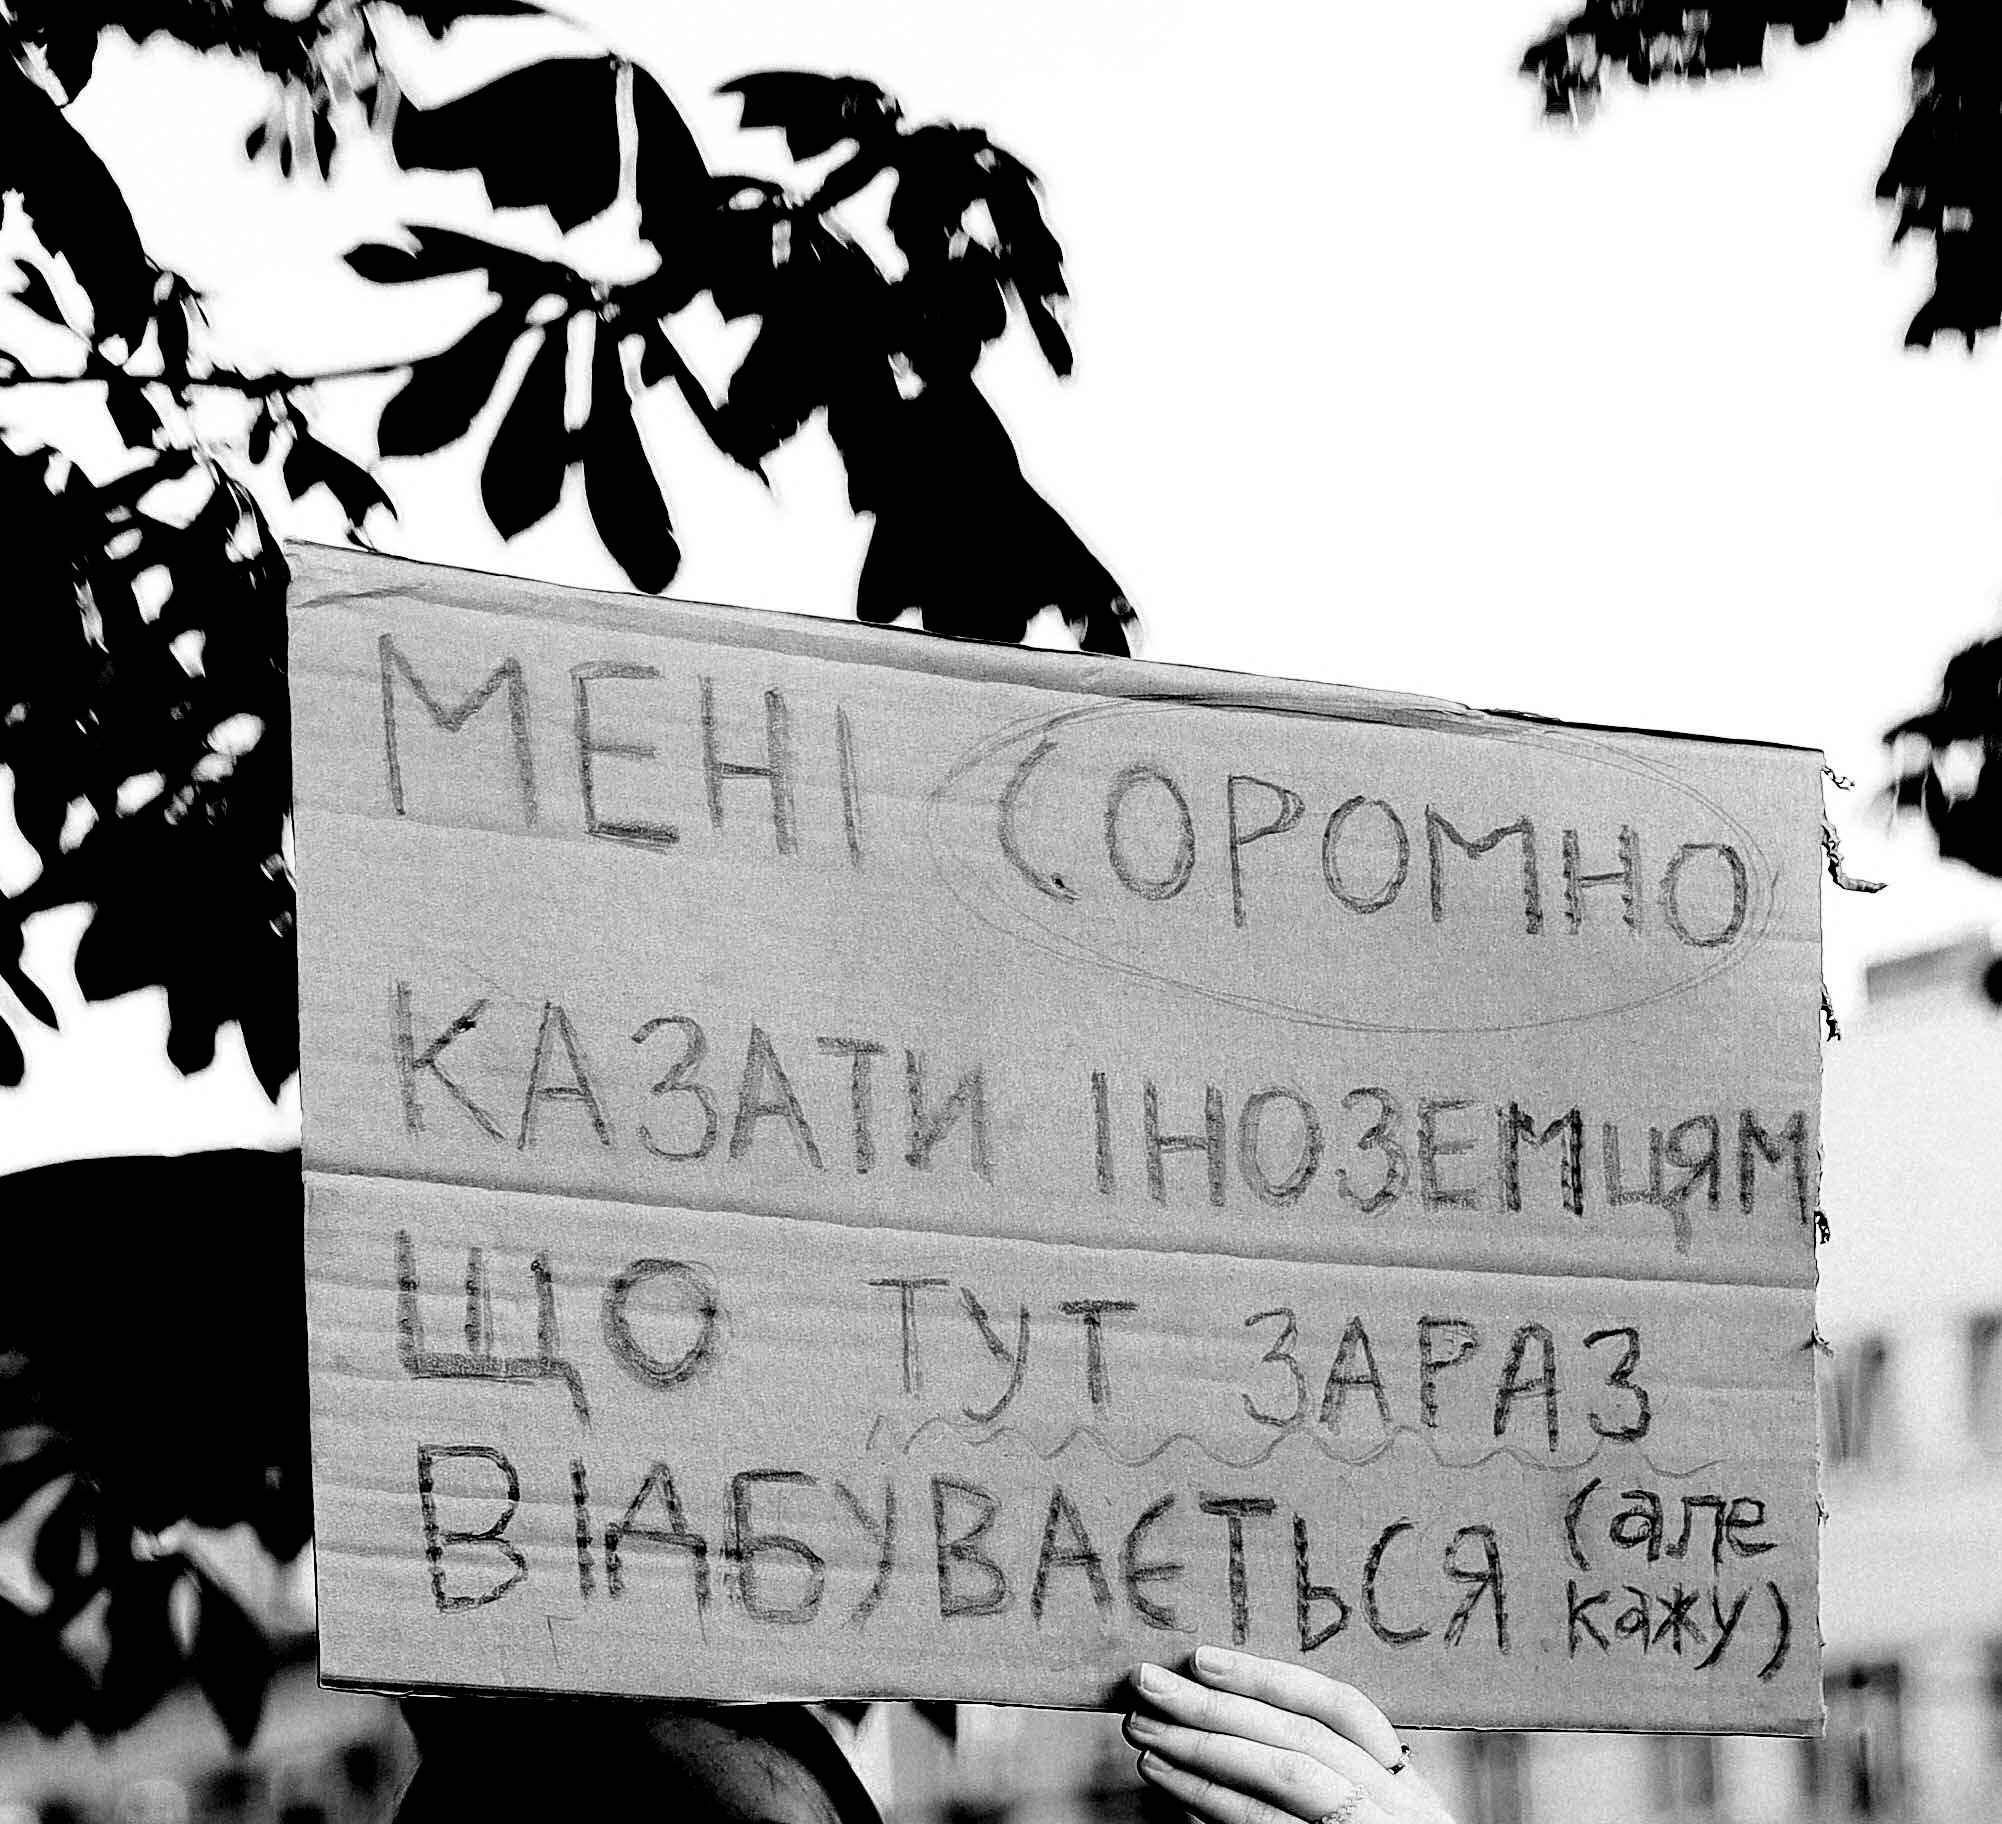 МЕНІ СОРОМНО
КАЗАТИ ІНОЗЕМЦЯМ
ЩО ТУТ ЗАРАЗ
ВІДБУВАЄТЬСЯ (але
кажу)